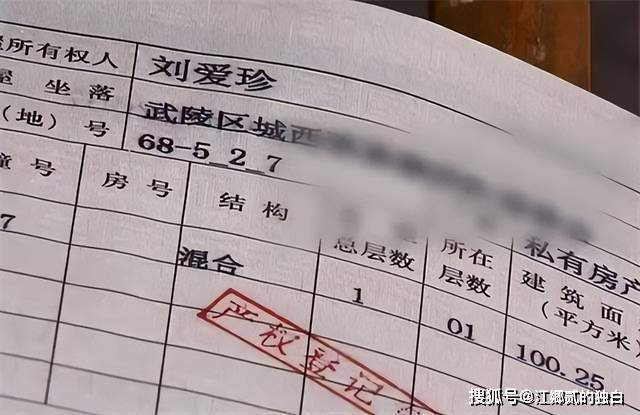 所有权人 刘爱珍
坐落 武陵区城西
(地)号 68-5_2_7
幢号 房号 结构 总层数 所在层数 建筑面
(平方米)
私有房产
7 混合 1 01 100.25
产权登记
搜狐号@江郷贰的独白